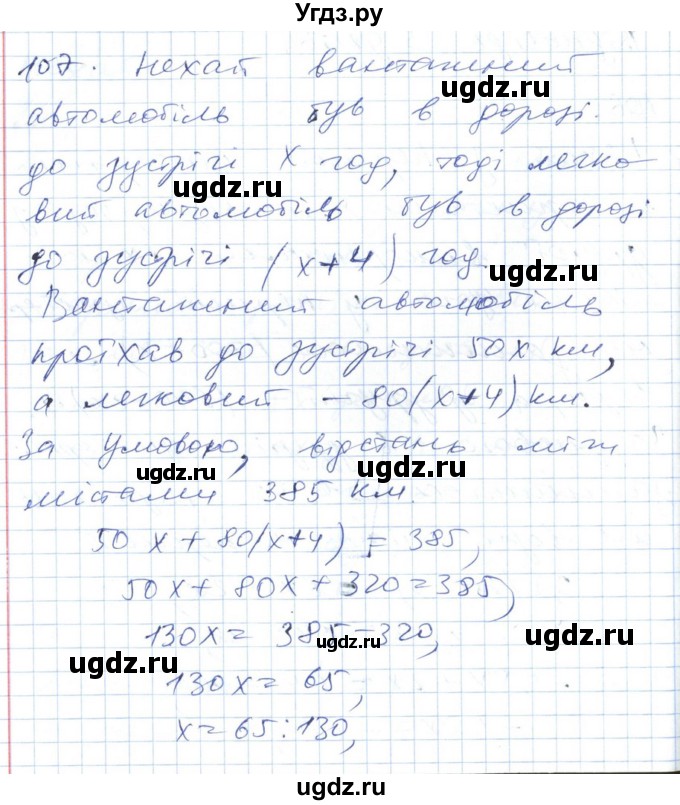 Угдз.ру
107. Нехай вантажний
автомобіль був в дорозі
до зустрічі x год, тоді легко
вий автомобіль був в дорозі
до зустрічі (x+4) год
Вантажний автомобіль
проїхав до зустрічі 50x км,
а легковий – 80(x+4) км.
За умовою, відстань між
містами 385 км.
50x + 80(x+4) = 385,
50x + 80x + 320 = 385,
130x = 385 – 320,
130x = 65,
x = 65 : 130,
ugdz.ru
ugdz.ru
ugdz.ru
ugdz.ru
ugdz.ru
ugdz.ru
ugdz.ru
ugdz.ru
ugdz.ru
ugdz.ru
ugdz.ru